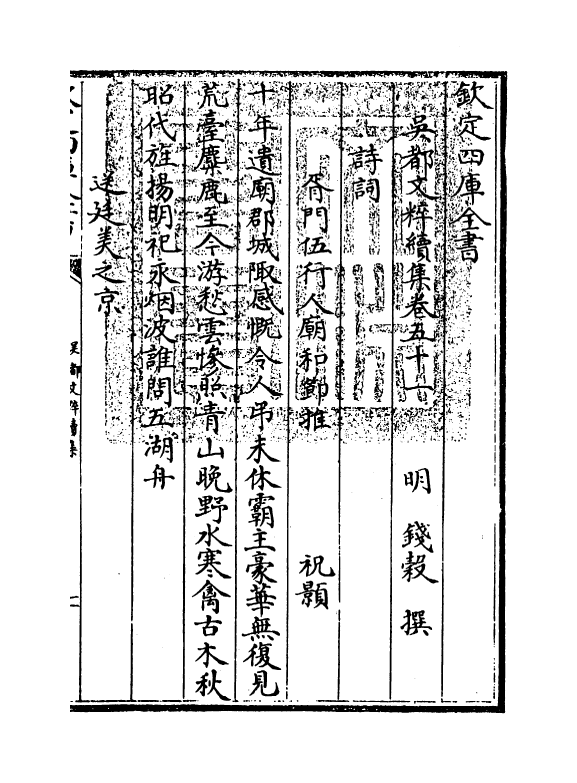 欽定四庫全書
吳都文粹續集卷五十一 明 錢穀 撰
詩詞
胥門伍行人廟和 祝顥
十年遺廟郡城陬感慨令人弔未休霸主豪華無復見
荒臺麋鹿至今游愁雲慘照青山晚野水寒禽古木秋
昭代旌揚明祀永烟波誰問五湖舟
送廷美之京
吳都文粹續集
一